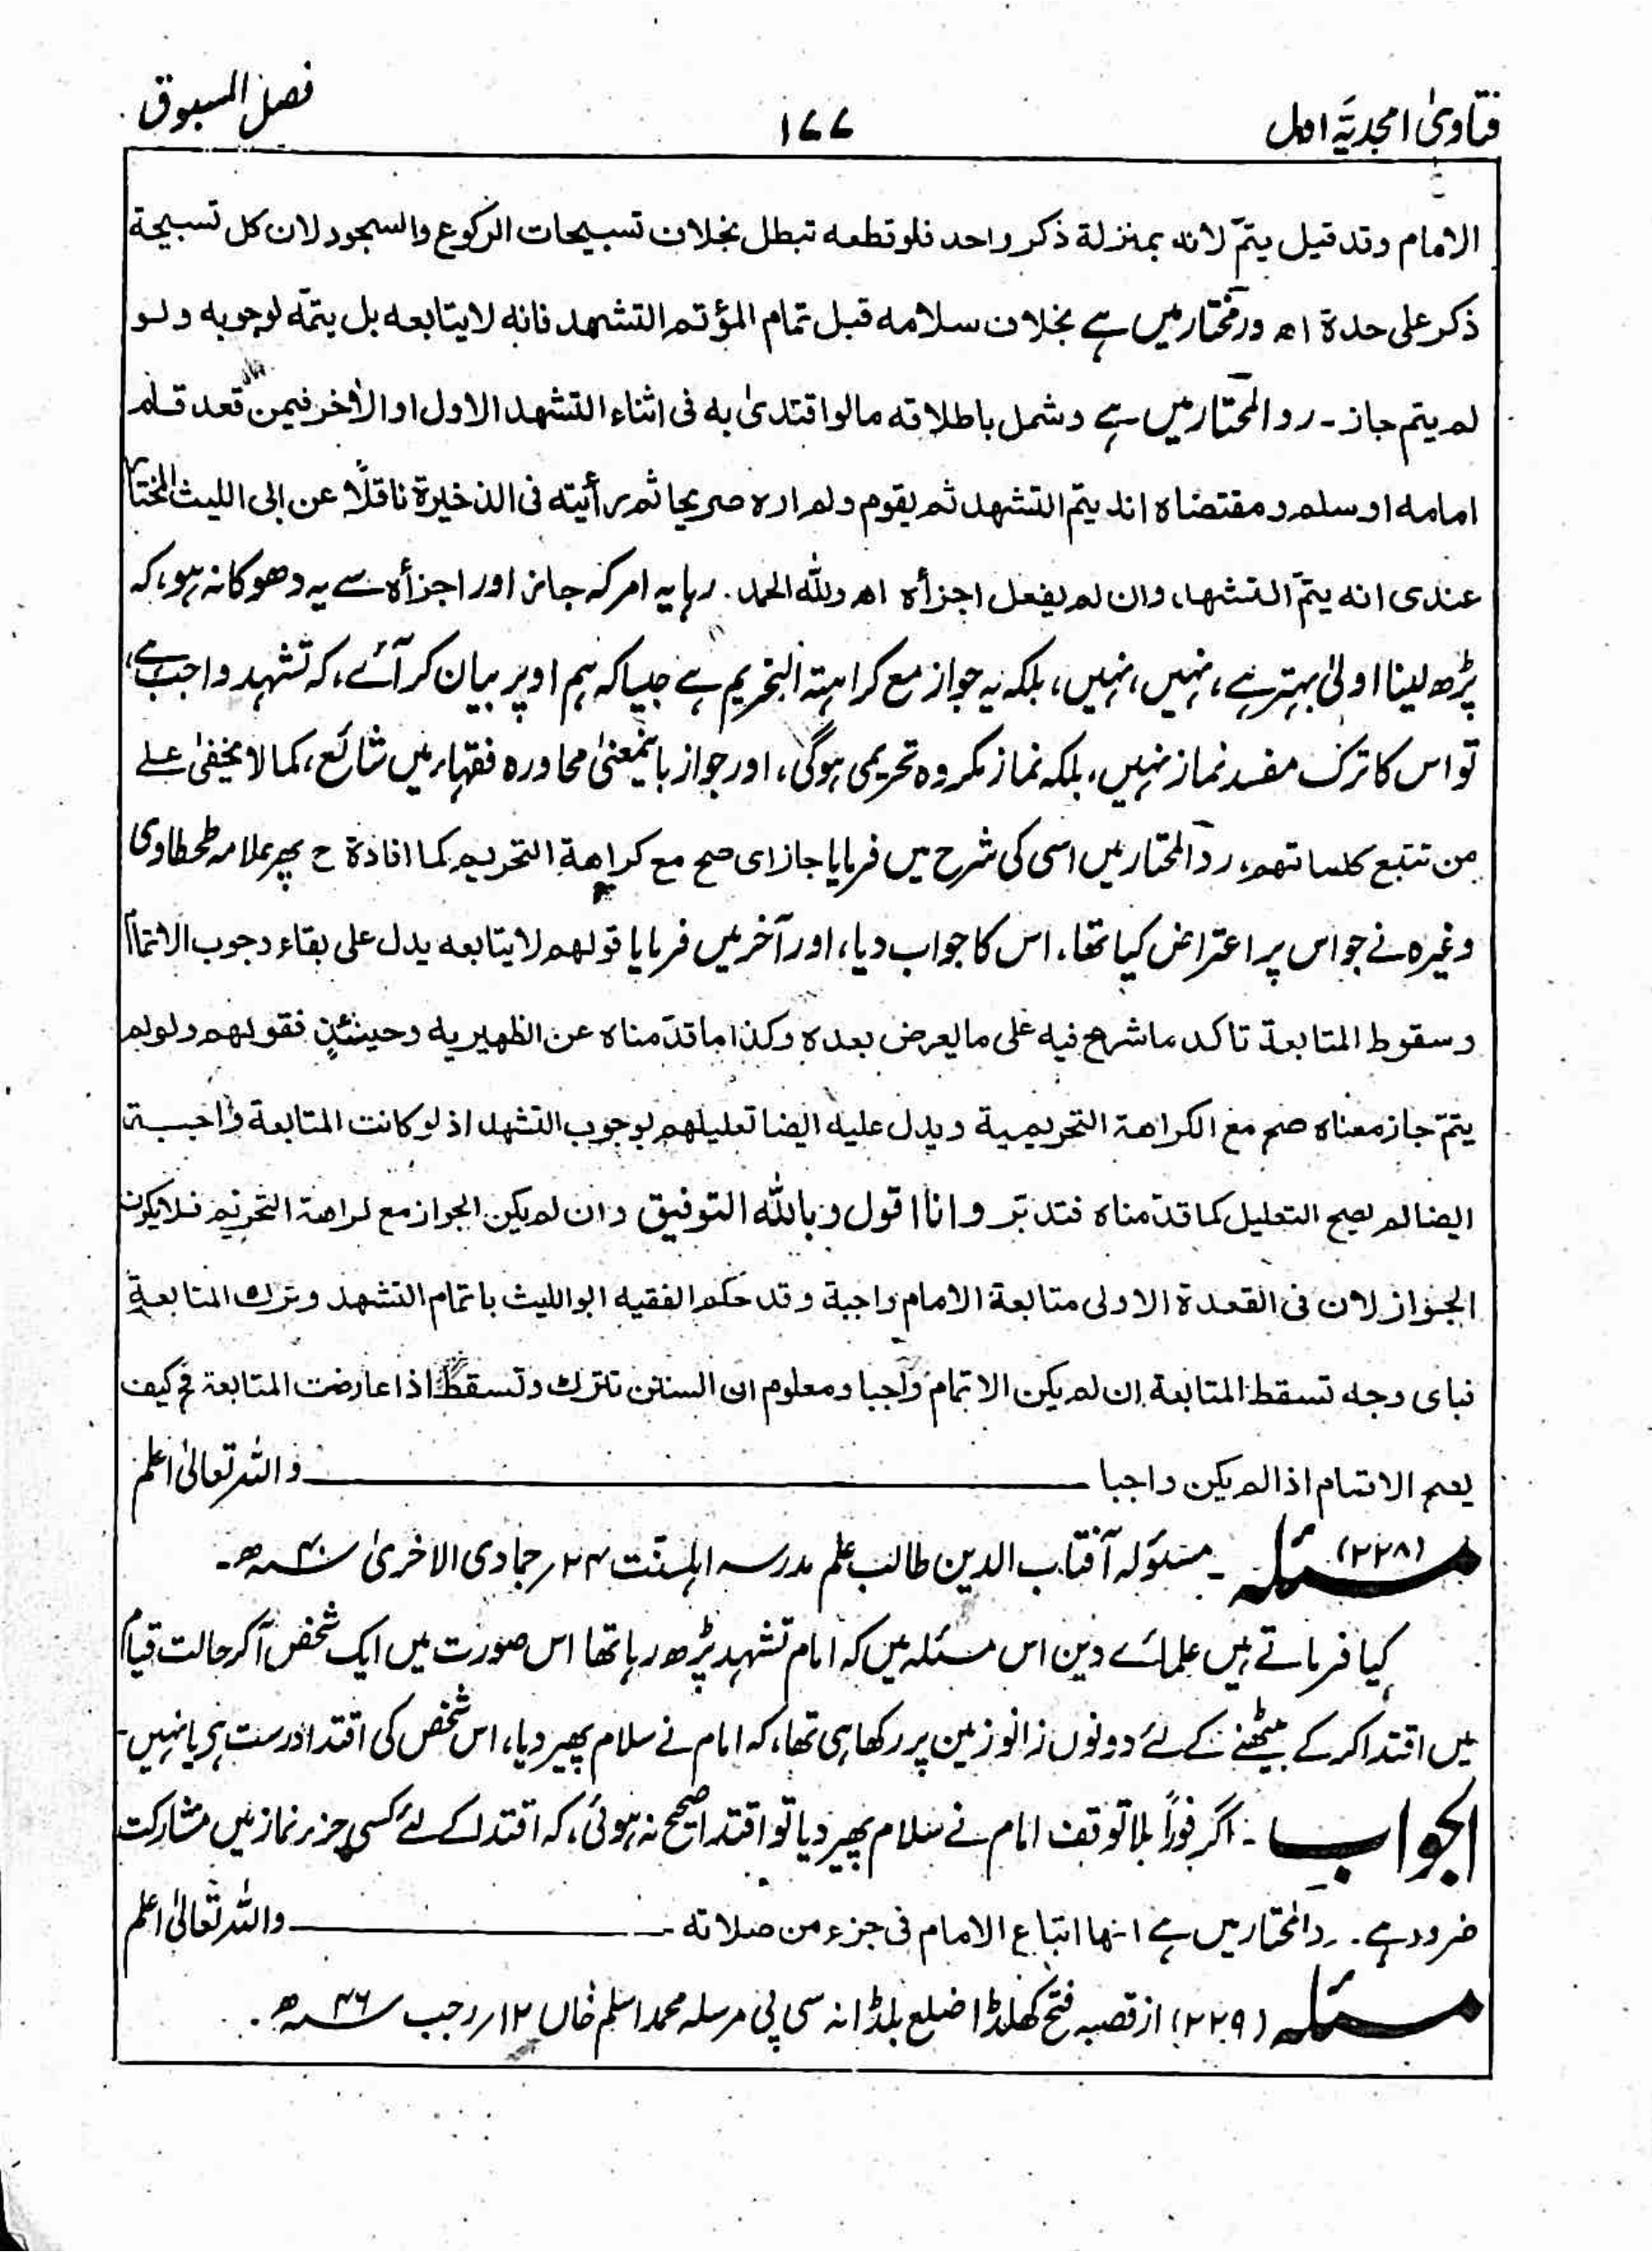 فتاویٰ امجدیَّہ اول
۱۷۷
فصل المسبوق
الامام وقد قیل یتمّ لانه بمنزلة ذکر واحد فلو قطعه تبطل بخلاف تسبیحات الرکوع والسجود لان کل تسبیحة
ذکر علی حدة اھ درمختار میں ہے بخلاف سلامه قبل تمام المؤتم التشهد فانه لایتابعه بل یتمّه لوجوبه ولو
لم یتم جاز ۔ ردالمحتار میں ہے وشمل باطلاقه مالو اقتدیٰ به فی اثناء التشهد الاول او الاخر فیمن قعد قام
امامه او سلم ومقتضاه انه یتمّ التشهد ثم یقوم ولم اره صریحا ثم رأیته فی الذخیرة ناقلاً عن ابی اللیث المختار
عندی انه یتمّ التشهد، وان لم یفعل اجزأه اھ وللّٰه الحمد . رہا یہ امر کہ جائز اور اجزأہ سے یہ دھوکا نہ ہو، کہ
پڑھ لینا اولیٰ بہتر ہے، نہیں، نہیں، بلکہ یہ جواز مع کراہتہ التحریم ہے جیسا کہ ہم اوپر بیان کر آئے، کہ تشہد واجب ہے،
تو اس کا ترک مفسد نماز نہیں، بلکہ نماز مکروہ تحریمی ہوگی، اور جواز بایںمعنیٰ محاورہ فقہاء میں شائع، کما لا یخفیٰ علے
من تتبع کلماتهم، ردالمحتار میں اسی کی شرح میں فرمایا جاز ای صح مع کراهة التحریم کما افاده ح پھر علامہ طحطاوی
وغیرہ نے جو اس پر اعتراض کیا تھا، اس کا جواب دیا، اور آخر میں فرمایا قولهم لایتابعه یدل علی بقاء وجوب الاتمام
وسقوط المتابعة تاکد ماشرع فیه علی مایعرض بعده وکذا ماقدّمناه عن الظهیریه وحینئذٍ فقولهم ولولم
یتمّ جاز معناه صح مع الکراهة التحریمیة ویدل علیه ایضا تعلیلهم لوجوب التشهد اذ لو کانت المتابعة واجبة
ایضا لم یصح التعلیل کما قدّمناه فتدبّر وانا اقول وباللّٰه التوفیق وان لم یکن الجواز مع کراهة التحریم فلایکون
الجواز لان فی القعدة الاولی متابعة الامام واجبة وقد حکم الفقیه ابو اللیث باتمام التشهد وترك المتابعة
فبای وجه تسقط المتابعة ان لم یکن الاتمام واجبا ومعلوم ان السنن تترك وتسقط اذا عارضت المتابعة فکیف
یعم الاتمام اذا لم یکن واجبا ــــــــــ واللہ تعالیٰ اعلم
مسئلہ (۲۲۸) ۔ مسئولہ آفتاب الدین طالب علم مدرسہ اہلسنت ۲۴؍ جمادی الاخریٰ سنہ ۴۰ھ ۔
کیا فرماتے ہیں علمائے دین اس مسئلہ میں کہ امام تشہد پڑھ رہا تھا اس صورت میں ایک شخص آکر حالت قیام
میں اقتدا کرکے بیٹھنے کے لئے دونوں زانو زمین پر رکھا ہی تھا، کہ امام نے سلام پھیر دیا، اس شخص کی اقتدا درست ہے یا نہیں ۔
الجواب :۔ اگر فوراً بلا توقف امام نے سلام پھیر دیا تو اقتدا صحیح نہ ہوئی، کہ اقتدا کے لئے کسی جزء نماز میں مشارکت
ضرور ہے . ردالمحتار میں ہے انها اتباع الامام فی جزء من صلاته ۔ ــــــــــ واللہ تعالیٰ اعلم
مسئلہ (۲۲۹) از قصبہ فتح کھلڈا ضلع بلڈانہ سی پی مرسلہ محمد اسلم خاں ۱۲؍ رجب سنہ ۴۶ھ .